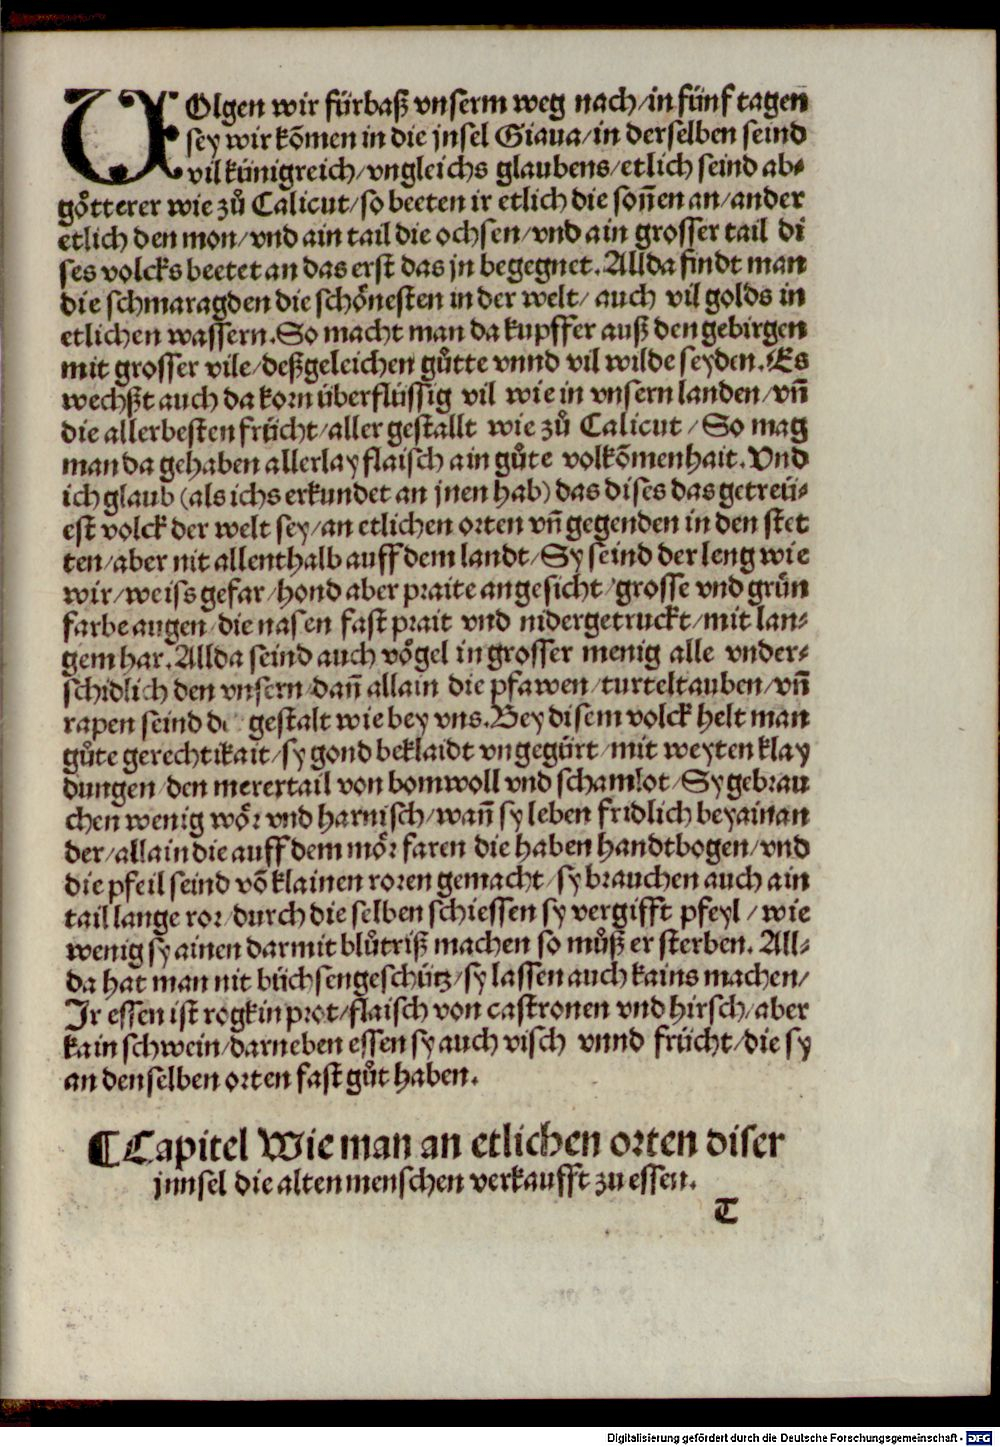 VOlgen wir fürbaß vnserm weg nach/in fünf tagen̄
sey wir kōmen in die jnsel Giaua/in derselben seind
vil künigreich/vngleichs glaubens/etlich seind ab⸗
goͤtterer wie zů Calicut/so beeten ir etlich die son̄en an/ander
etlich den mon/vnd ain tail die ochsen/vnd ain grosser tail di
ses volcks beetet an das erst das jn begegnet. Allda findt man
die schmaragden die schoͤnesten in der welt/auch vil golds in
etlichen wassern. So macht man da kupffer auß den gebirgen
mit grosser vile/deßgeleichen gůtte vnnd vil wilde seyden. Es
wechßt auch da korn überflüssig vil wie in vnsern landen/vn̄
die allerbesten frücht/aller gestallt wie zů Calicut/So mag
man da gehaben allerlay flaisch ain gůte volkōmenhait. Vnd
ich glaub (als ichs erkundet an jnen hab) das dises das getreü⸗
est volck der welt sey/an etlichen orten vn̄ gegenden in den stet
ten/aber nit allenthalb auff dem landt/Sy seind der leng wie
wir/weiss gefar/hond aber praite angesicht/grosse vnd grün
farbe augen/die nasen fast prait vnd nidergetruckt/mit lan⸗
gem har. Allda seind auch voͤgel in grosser menig alle vnder⸗
schidlich den vnsern/dan̄ allain die pfawen/turteltauben/vn̄
rapen seind d gestalt wie bey vns. Bey disem volck helt man
gůte gerechtikait/sy gond beklaidt vngegürt/mit weyten klay
dungen/den merertail von bomwoll vnd schamlot/Sy gebrau
chen wenig woͤr vnd harnisch/wan̄ sy leben fridlich beyainan
der/allain die auff dem moͤr faren die haben handtbogen/vnd
die pfeil seind vō klainen roren gemacht/sy brauchen auch ain
tail lange ror/durch die selben schiessen sy vergifft pfeyl/wie
wenig sy ainen darmit blůtriß machen so můß er sterben. All⸗
da hat man nit büchsengeschütz/sy lassen auch kains machen/
Ir essen ist rogkin prot/flaisch von castronen vnd hirsch/aber
kain schwein/darneben essen sy auch visch vnnd frücht/die sy
an denselben orten fast gůt haben.
¶Capitel Wie man an etlichen orten diser
jnnsel die alten menschen verkaufft zu essen.
T
Digitalisierung gefördert durch die Deutsche Forschungsgemeinschaft - DFG